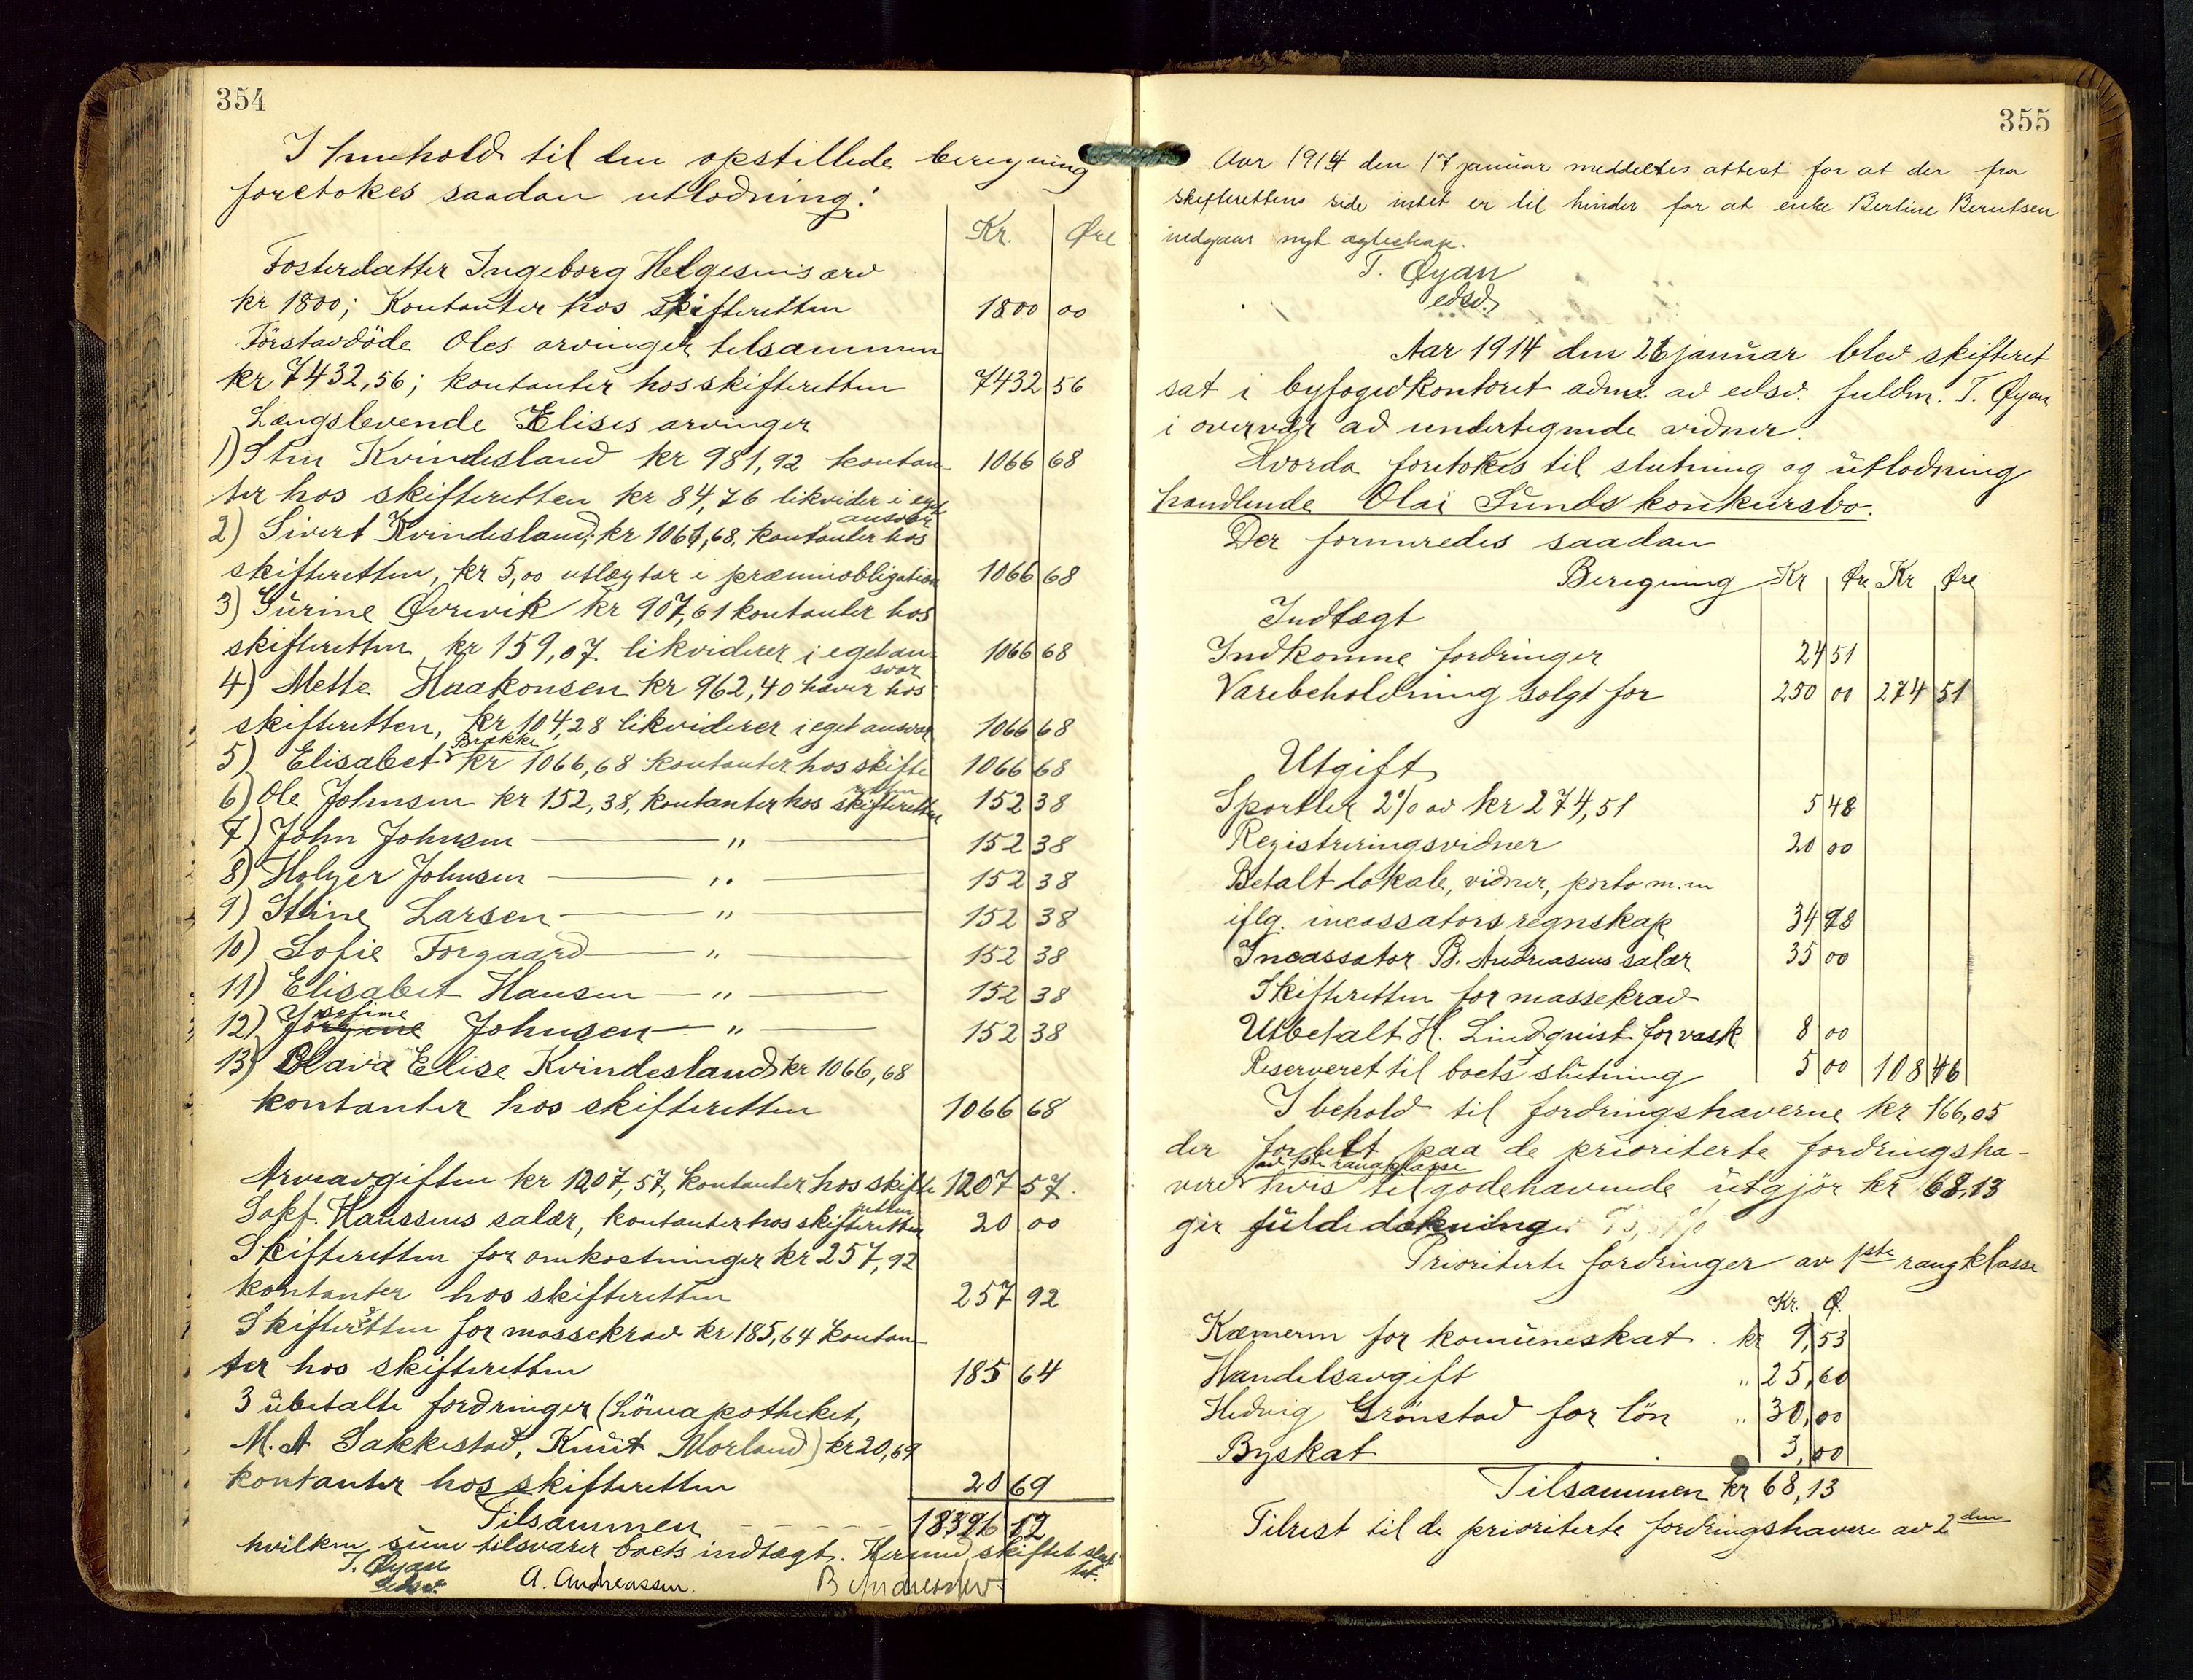 354
I henhold til den opstillede beregning
foretokes saadan utlodning:
Kr. Øre
Fosterdatter Ingeborg Helgesens arv
kr 1800; Kontanter hos skifteretten 1800 00
Førstavdøde Oles arvinger tilsammen
kr 7432,56; kontanter hos skifteretten 7432 56
Længslevende Elises arvinger
1) Sten Kvindesland kr 981,92 kontan- 1066 68
ter hos skifteretten kr 84,76 likvider i eget
ansvar
2) Sivert Kvindesland, kr 1061,68, kontanter hos
skifteretten, kr 5,00 utlægtar e præmieobligation 1066 68
3) Surine Øvrevik kr 907,61 kontanter hos
skifteretten kr 159,07 likviderer i eget an- 1066 68
svar
4) Mette Haakonsen kr 962,40 hæver hos
skifteretten, kr 104,28 likviderer i eget ansvar 1066 68
5) Elisabet Brække kr 1066,68 kontanter hos skifte 1066 68
retten
6) Ole Johnsen kr 152,38, kontanter hos skifteretten 152 38
7) John Johnsen — " — 152 38
8) Holger Johnsen — " — 152 38
9) Stine Larsen — " — 152 38
10) Sofie Forgaard — " — 152 38
11) Elisabet Hansen — " — 152 38
12) Josefine Johnsen — " — 152 38
13) Olava Elise Kvindesland kr 1066,68
kontanter hos skifteretten 1066 68
Arveavgiften kr 1207,57, kontanter hos skifte 1207 57
retten
Sakf. Hanssens salær, kontanter hos skifteretten 20 00
Skifteretten for omkostninger kr 257,92
kontanter hos skifteretten 257 92
Skifteretten for massekrav kr 185,64 kontan-
ter hos skifteretten 185 64
3 ubetalte fordringer (Løveapotheket,
M. A Sakkestad, Knut Morland) kr 20,69
kontanter hos skifteretten 20 69
Tilsammen - - - - 18396 12
hvilken sum tilsvarer boets indtægt. Hermed skiftet slut-
tet.
T. Øyan
edsv. A. Andreassen. B Andreassen
355
Aar 1914 den 17 januar meddeltes attest for at der fra
skifterettens side intet er til hinder for at enke Bertine Berntsen
indgaar nyt egteskap.
T. Øyan
edsv.
Aar 1914 den 26 januar blev skifteret
sat i byfogedkontoret adm. av edsv. fuldm. T. Øyan
i overvær av undertegnede vidner.
Hvorda foretokes til slutning og utlodning
handlende Olai Sunds konkursbo.
Der formeredes saadan
Beregning Kr Øre Kr Øre
Indtægt
Indkomne fordringer 24 51
Varebeholdning solgt for 250 00 274 51
Utgift
Sportler 2% av kr 274,51 5 48
Registreringsvidner 20 00
Betalt lokale, vidner, porto m.m
iflg. incassators regnskap 34 98
Incassator B. Andreasens salær 35 00
Skifteretten for massekrav
Utbetalt H. Lindquist for vask 8 00
Reserveret til boets slutning 5 00 108 46
I behold til fordringshaverne kr 166,05
der fordelt paa de prioriterte fordringsha-
av 1ste rangklasse
vere hvis tilgodehavende utgjør kr 68,13
gir fuld dækning.
Prioriterte fordringer av 1ste rangklasse
Kr. Ø.
Kæmneren for komuneskat kr 9,53
Handelsavgift " 25,60
Hedvig Grønstad for løn " 30,00
Byskat 3,00
Tilsammen kr 68,13
Tilrest til de prioriterte fordringshavere av 2den